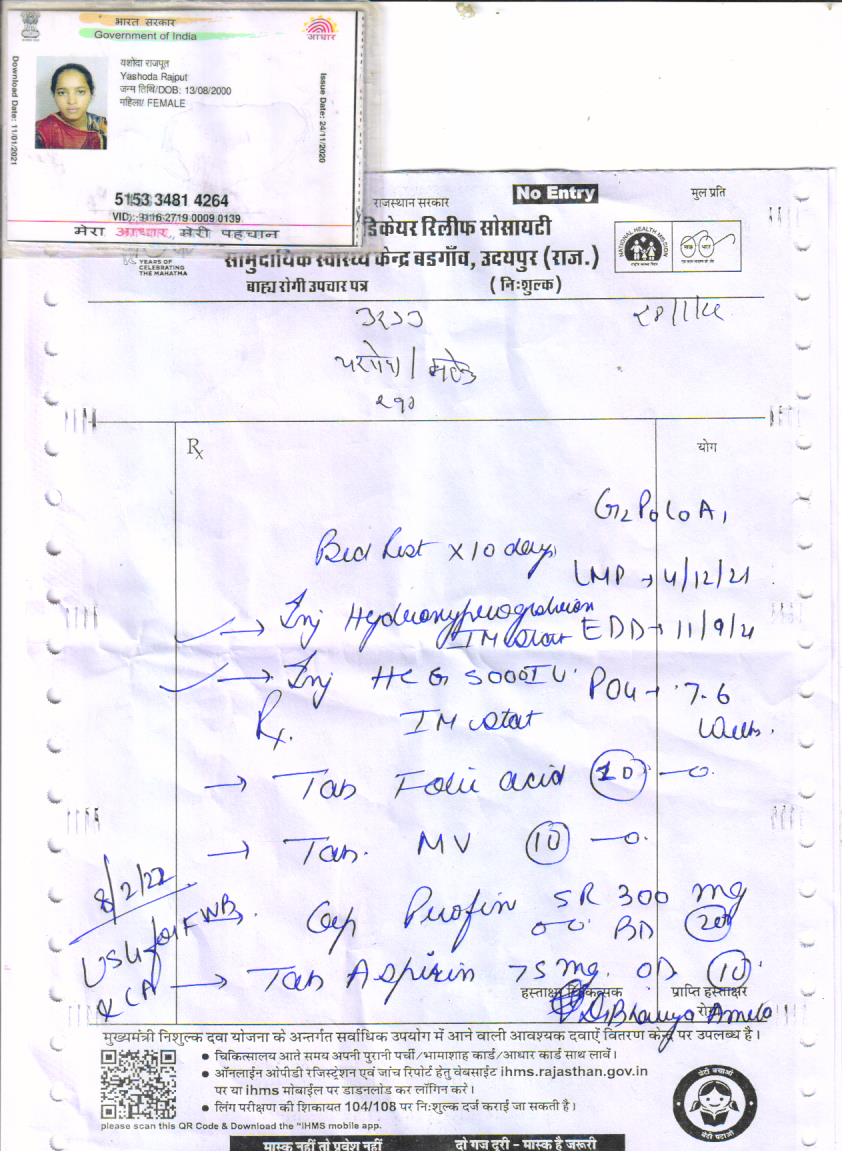 भारत सरकार
Government of India
आधार
यशोदा राजपूत
Yashoda Rajput
जन्म तिथि/DOB: 13/08/2000
महिला/ FEMALE
Download Date: 11/01/2021
Issue Date: 24/11/2020
5153 3481 4264
VID: 9116 2719 0009 0139
मेरा आधार, मेरी पहचान
राजस्थान सरकार
No Entry
मुल प्रति
डिकेयर रिलीफ सोसायटी
NATIONAL HEALTH MISSION
YEARS OF
CELEBRATING
THE MAHATMA
सामुदायिक स्वास्थ्य केन्द्र बडगाँव, उदयपुर (राज.)
बाह्य रोगी उपचार पत्र
(निःशुल्क)
यशोदा /
Rx
योग
G2P0L0A1
Bed Rest x 10 days
LMP → 4/12/21
Inj Hydroxyprogesteron
IM stat
EDD → 11/9/21
Inj HCG 5000 IU
POG → 7.6
Rx.
IM stat
Weeks.
→ Tab Folic acid 10
→ Tab. MV 10
8/2/22
USG for FWB
& CA
Cap SR 300 mg
BD 20
→ Tab Aspirin 75 mg. OD 10
हस्ताक्षर चिकित्सक
प्राप्ति हस्ताक्षर
Dr Bhavya Ameta
मुख्यमंत्री निशुल्क दवा योजना के अन्तर्गत सर्वाधिक उपयोग में आने वाली आवश्यक दवाऐं वितरण केन्द्र पर उपलब्ध है।
● चिकित्सालय आते समय अपनी पुरानी पर्ची/भामाशाह कार्ड/आधार कार्ड साथ लावें।
● ऑनलाईन ओपीडी रजिस्ट्रेशन एवं जांच रिपोर्ट हेतु वेबसाईट ihms.rajasthan.gov.in
पर या ihms मोबाईल पर डाडनलोड कर लॉगिन करे।
● लिंग परीक्षण की शिकायत 104/108 पर निःशुल्क दर्ज कराई जा सकती है।
please scan this QR Code & Download the "IHMS mobile app.
बेटी बचाओ
बेटी पढ़ाओ
मास्क नहीं तो प्रवेश नहीं
दो गज दूरी – मास्क है जरूरी